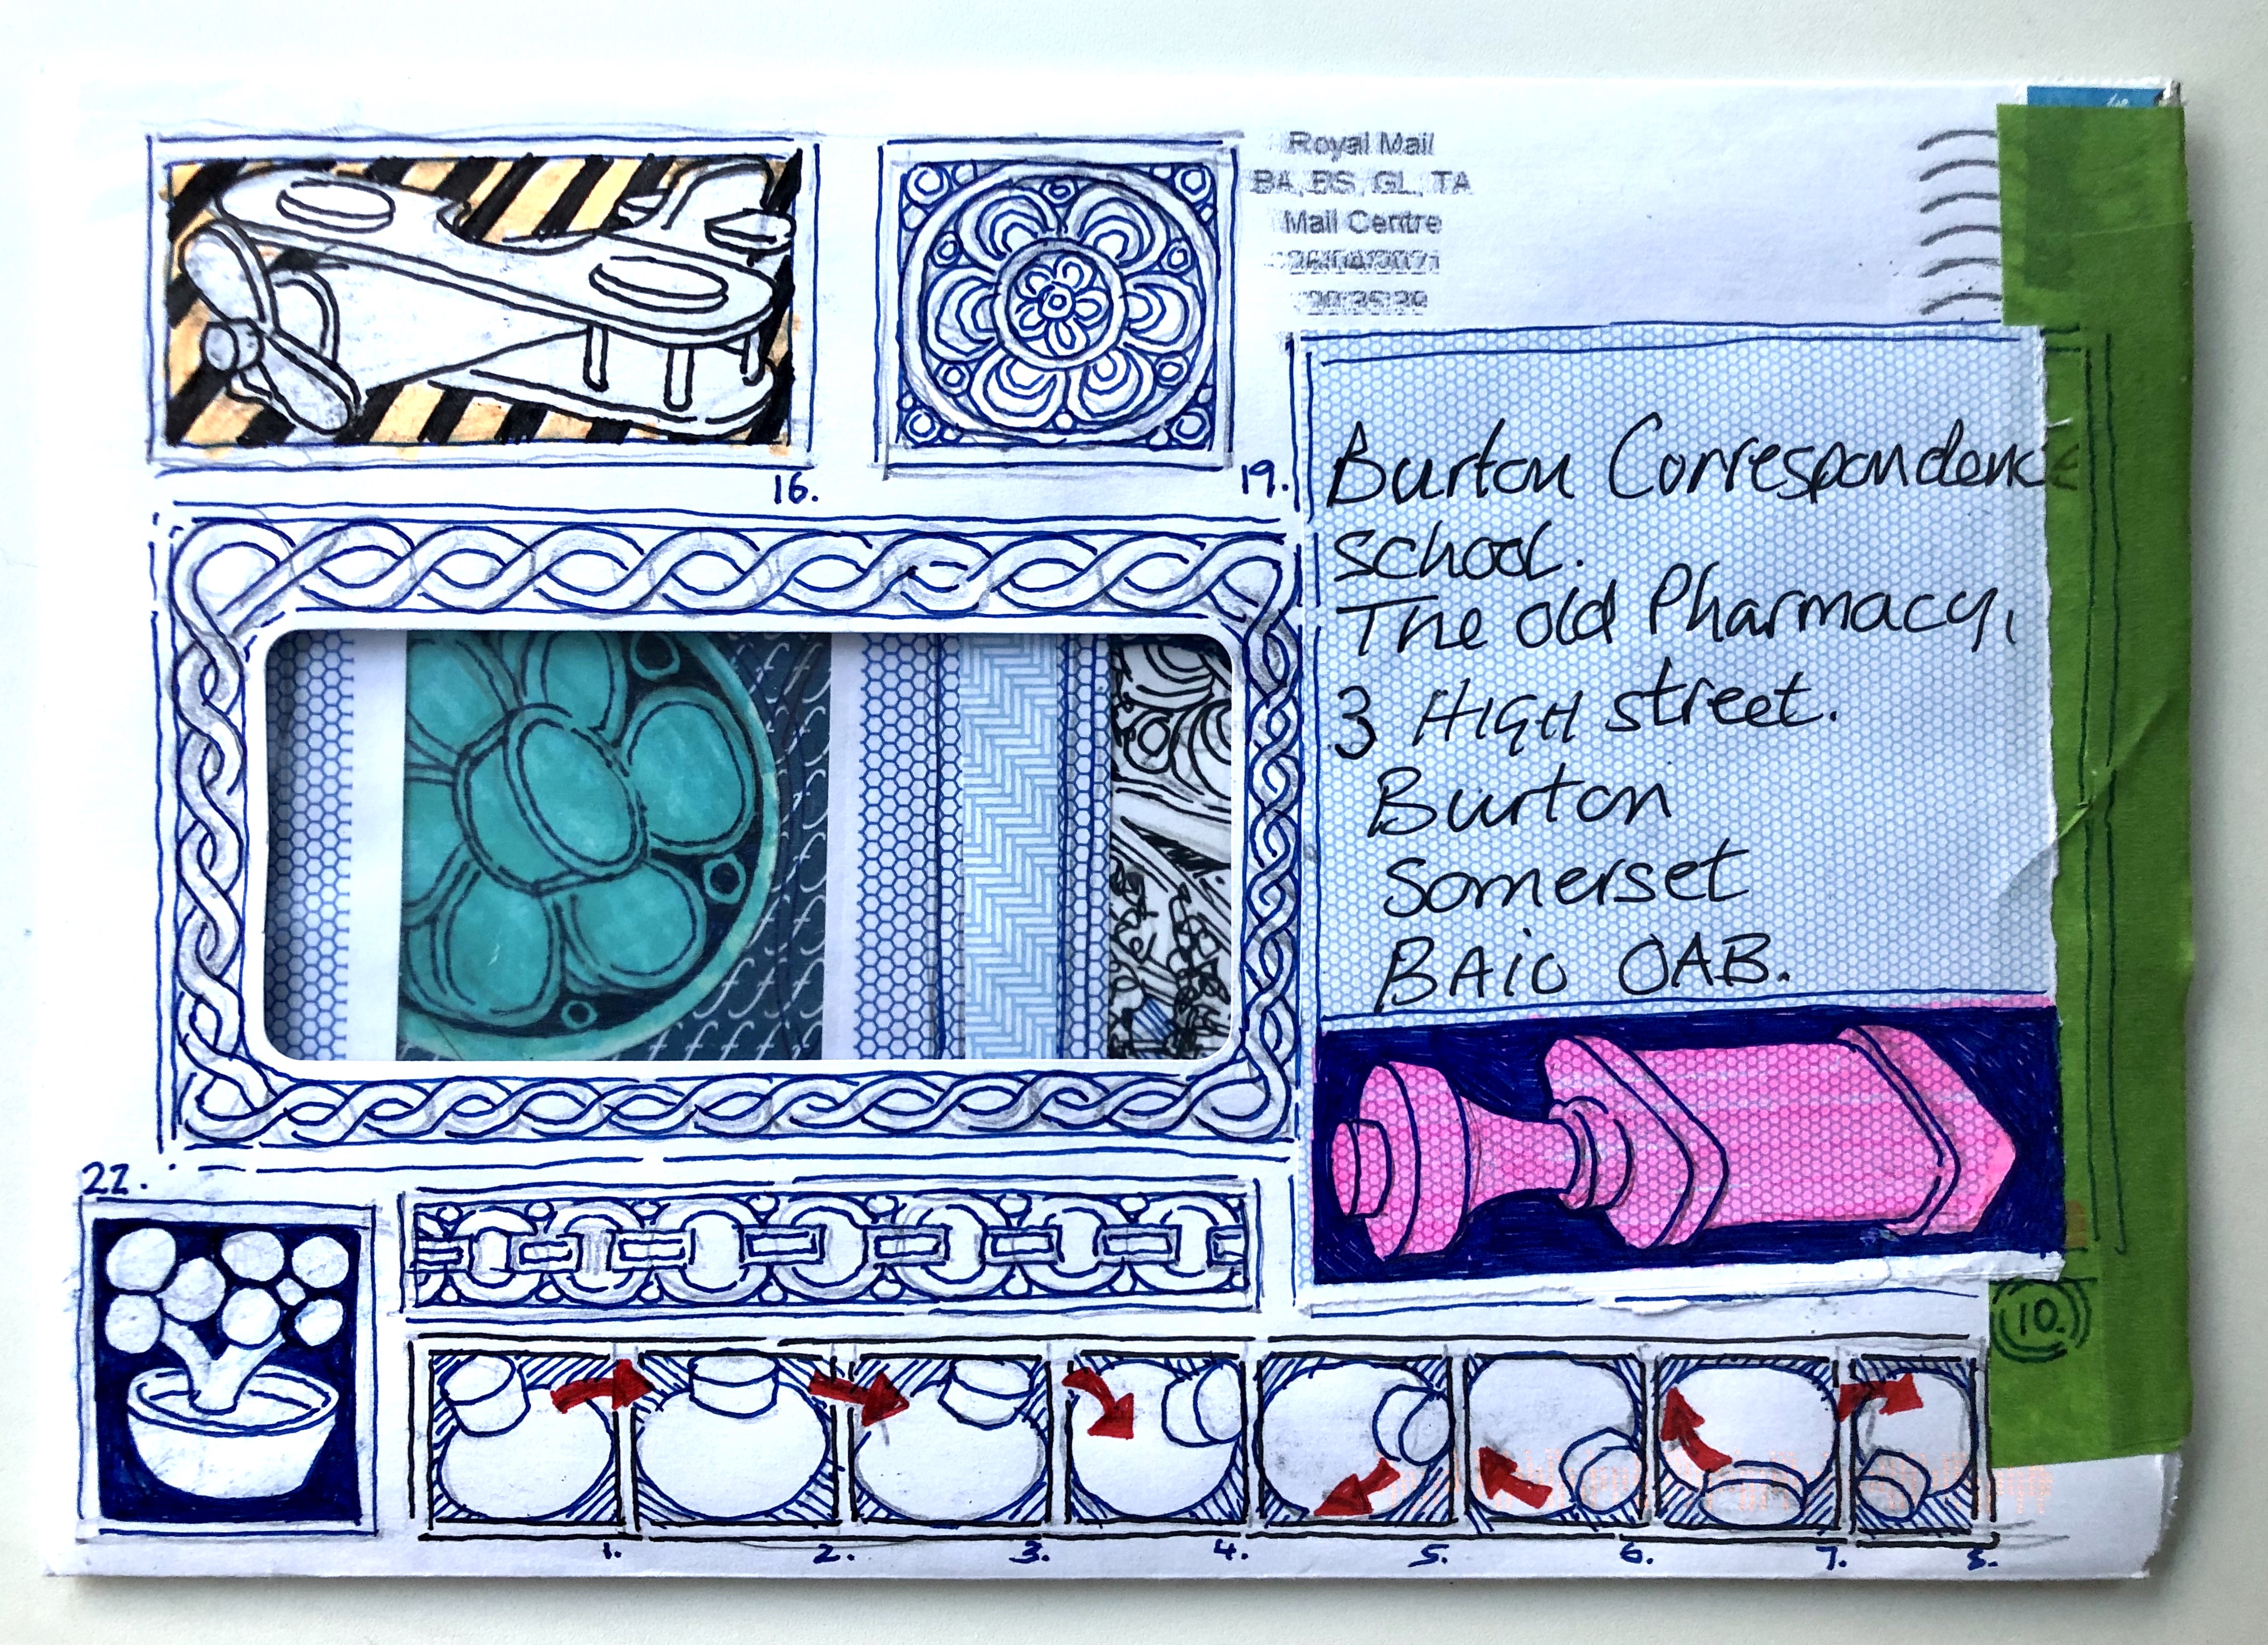 Royal Mail
BA, BS, GL, TA
Mail Centre
16.
19.
Burton Correspondence
school.
The old Pharmacy,
3 HIGH street.
Burton
Somerset
BA10 0AB.
22.
10.
1. 2. 3. 4. 5. 6. 7. 8.